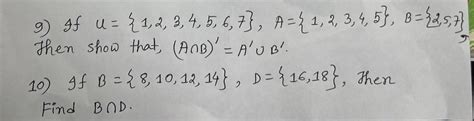 9) If U = {1, 2, 3, 4, 5, 6, 7}, A = {1, 2, 3, 4, 5}, B = {2, 5, 7}
Then show that, (A∩B)' = A' ∪ B'.
10) If B = {8, 10, 12, 14}, D = {16, 18}, Then
Find B∩D.